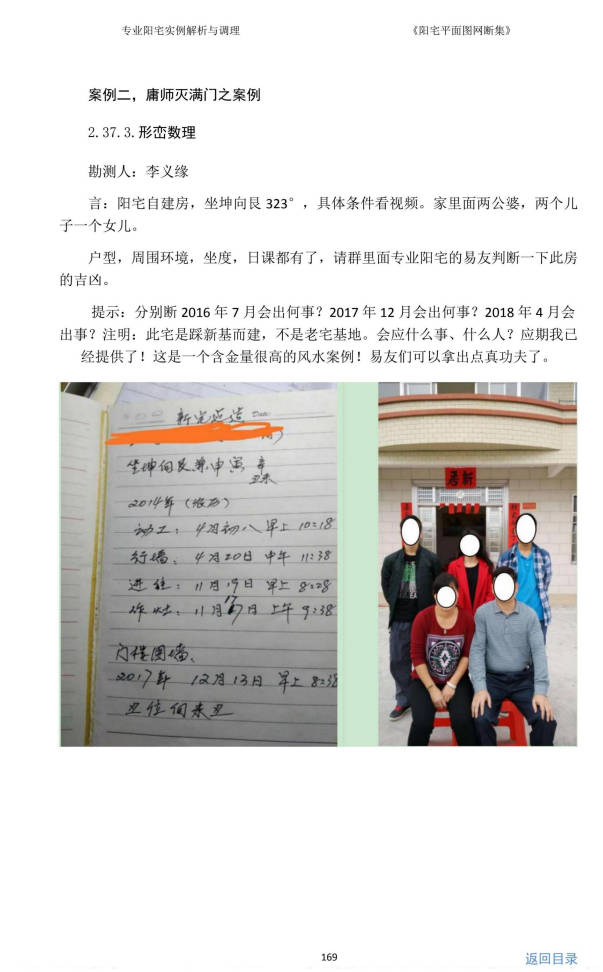 专业阳宅实例解析与调理 《阳宅平面图网断集》
案例二，庸师灭满门之案例
2.37.3.形峦数理
勘测人：李义缘
言：阳宅自建房，坐坤向艮 323°，具体条件看视频。家里面两公婆，两个儿
子一个女儿。
户型，周围环境，坐度，日课都有了，请群里面专业阳宅的易友判断一下此房
的吉凶。
提示：分别断 2016 年 7 月会出何事？2017 年 12 月会出何事？2018 年 4 月会
出事？注明：此宅是踩新基而建，不是老宅基地。会应什么事、什么人？应期我已
经提供了！这是一个含金量很高的风水案例！易友们可以拿出点真功夫了。
Date
坐坤向艮兼申寅 辛
丑未
2014年（农历）
动工：4月初八早上 10:18
行墙：4月20日 中午 11:38
进住：11月19日 早上 8:28
作灶：11月17日 上午 9:38
门楼围墙、
2017年 12月13日 早上 8:38
丑位向未丑
新居
169
返回目录